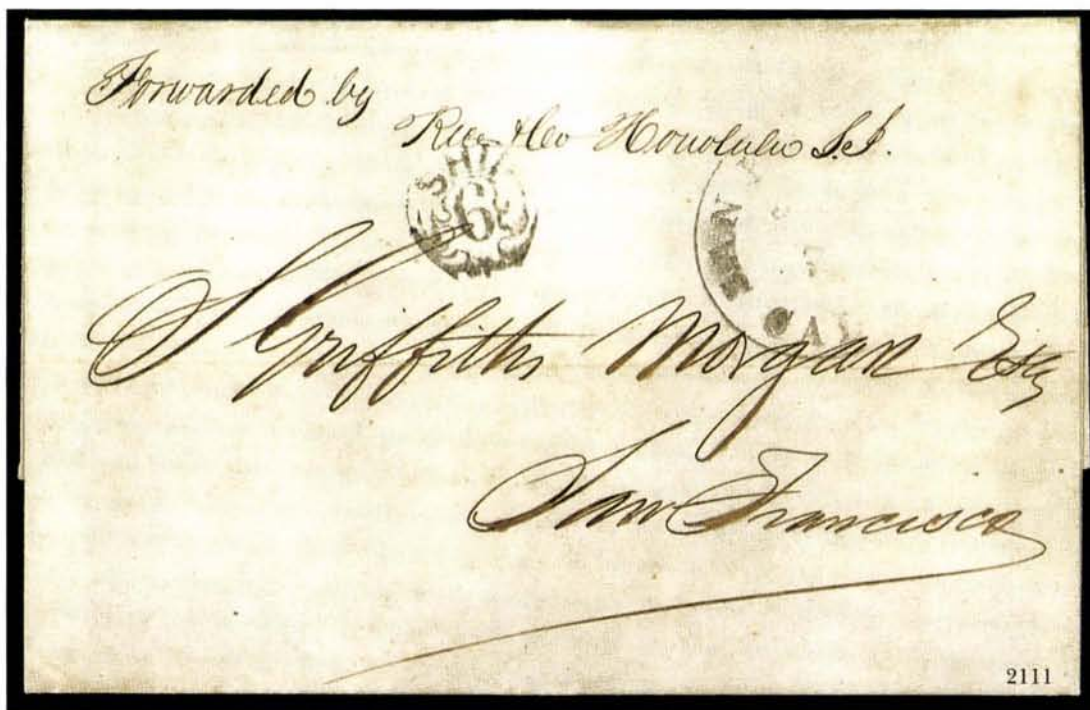 Forwarded by
Rice & Co Honolulu S.I.
6
SAN
CAL
S Griffitts Morgan Esq
San Francisco
2111